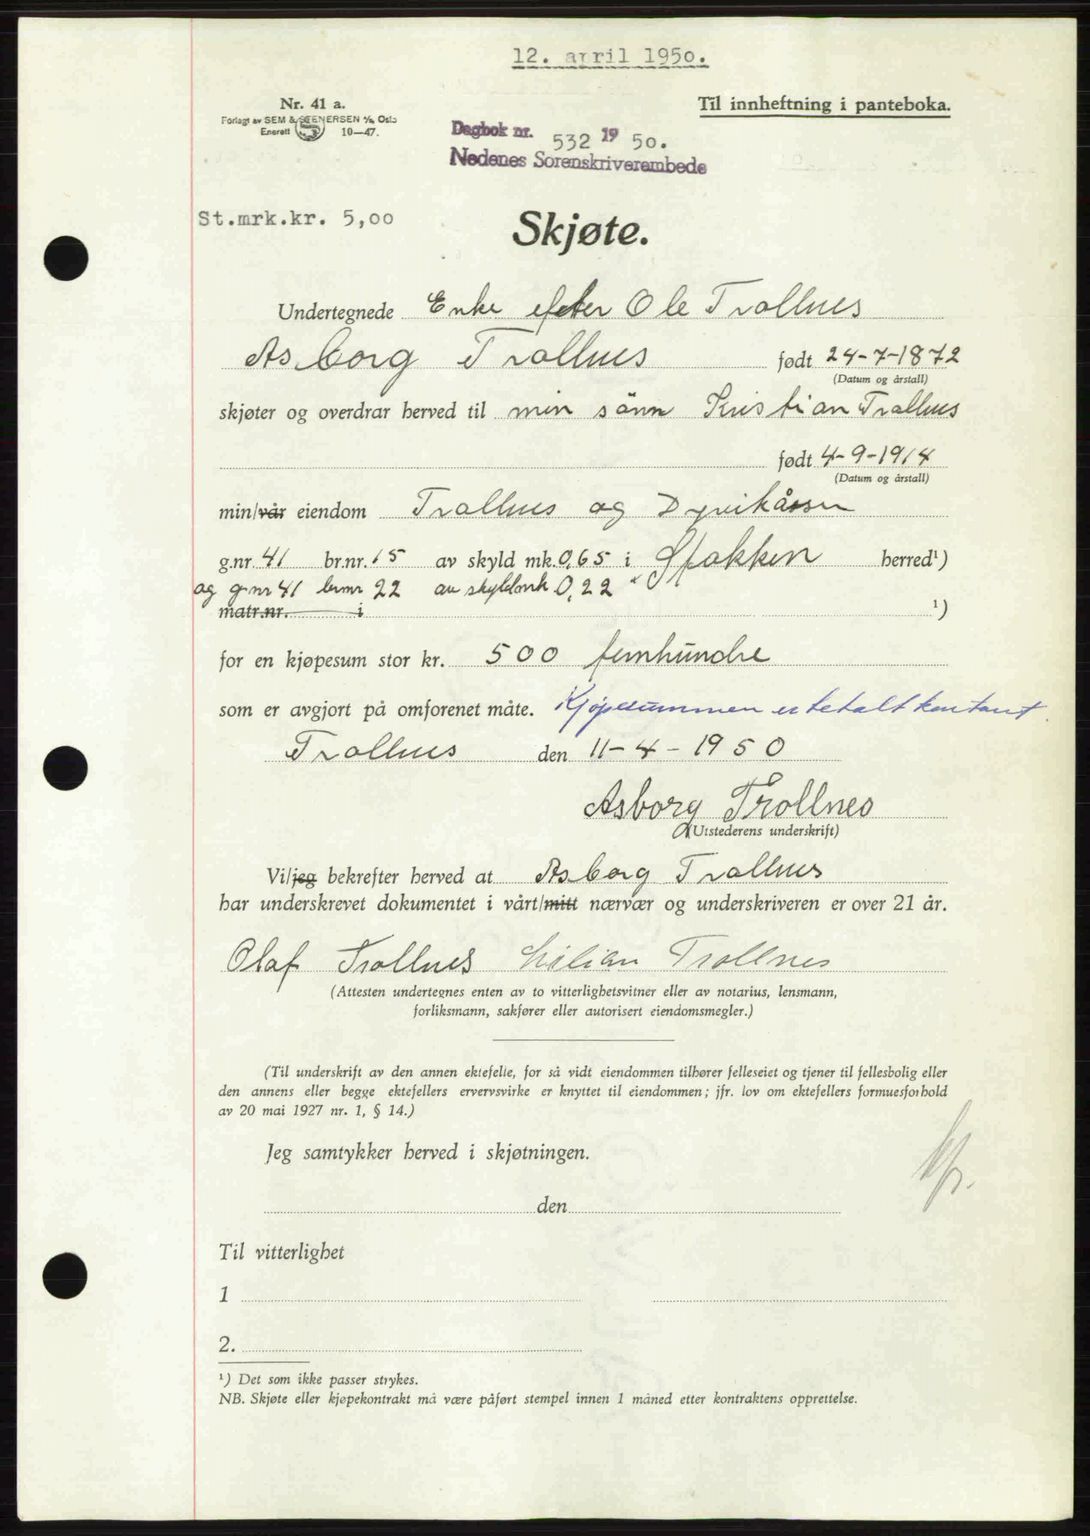 12. april 1950.
Nr. 41 a.
Forlagt av SEM & STENERSEN A/S, Oslo
Enerett 10—47.
Til innheftning i panteboka.
Dagbok nr. 532 19 50.
Nedenes Sorenskriverembede
St.mrk.kr. 5,00
Skjøte.
Undertegnede Enke efter Ole Trollnes
Asborg Trollnes født 24-7-1872
(Datum og årstall)
skjøter og overdrar herved til min sönn Kristian Trollnes
født 4-9-1914
(Datum og årstall)
min/vår eiendom Trollnes og Dyvikåsen
g.nr. 41 br.nr. 15 av skyld mk. 0,65 i Stokken herred¹)
og g nr 41 br nr 22 av skyldmrk 0,22 "
matr.nr. i ¹)
for en kjøpesum stor kr. 500 femhundre
som er avgjort på omforenet måte. Kjøpesummen er betalt kontant.
Trollnes den 11-4-1950
Asborg Trollnes
(Utstederens underskrift)
Vi/jeg bekrefter herved at Asborg Trollnes
har underskrevet dokumentet i vårt/mitt nærvær og underskriveren er over 21 år.
Olaf Trollnes Lilian Trollnes
(Attesten undertegnes enten av to vitterlighetsvitner eller av notarius, lensmann,
forliksmann, sakfører eller autorisert eiendomsmegler.)
(Til underskrift av den annen ektefelle, for så vidt eiendommen tilhører felleseiet og tjener til fellesbolig eller
den annens eller begge ektefellers ervervsvirke er knyttet til eiendommen; jfr. lov om ektefellers formuesforhold
av 20 mai 1927 nr. 1, § 14.)
Jeg samtykker herved i skjøtningen.
den
Til vitterlighet
1
2.
¹) Det som ikke passer strykes.
NB. Skjøte eller kjøpekontrakt må være påført stempel innen 1 måned etter kontraktens opprettelse.